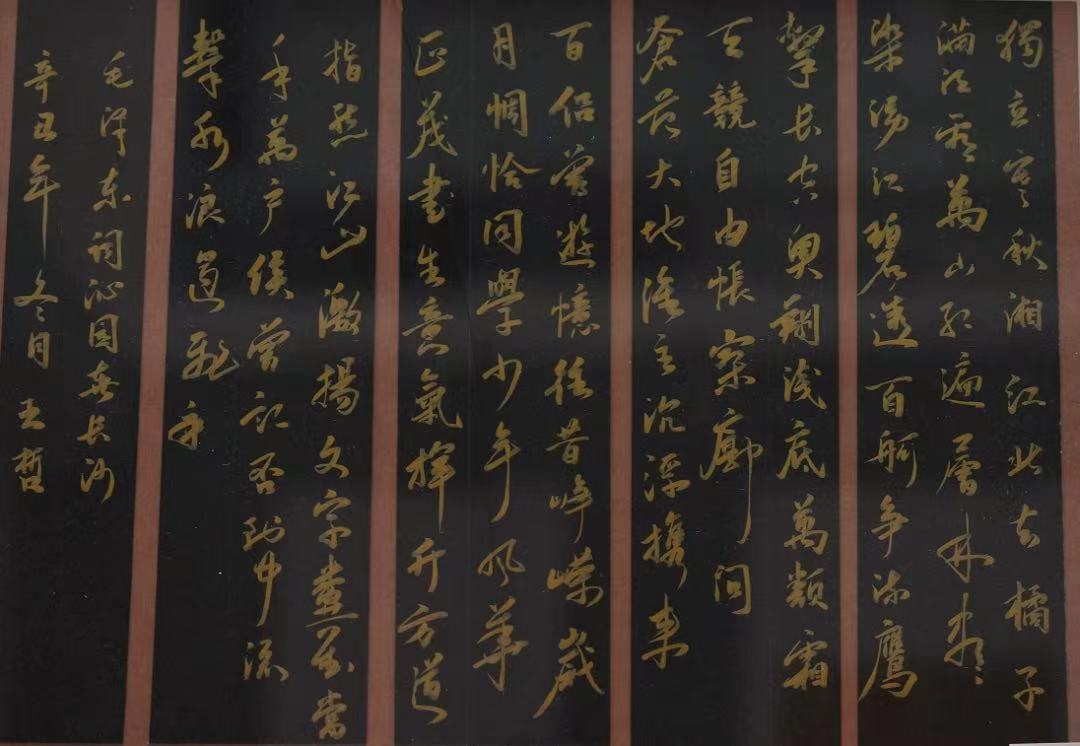 獨立寒秋湘江北去橘子
滿江看萬山紅遍層林盡
染漫江碧透百舸爭流鷹
擊長空魚翔淺底萬類霜
天競自由悵寥廓問
蒼茫大地誰主沉浮攜來
百侶曾遊憶往昔崢嶸歲
月惆恰同學少年風華
正茂書生意氣揮斥方遒
指點江山激揚文字糞土當
年萬戶侯曾記否到中流
擊水浪遏飛舟
毛澤東詞沁園春長沙
辛丑年冬月 王哲